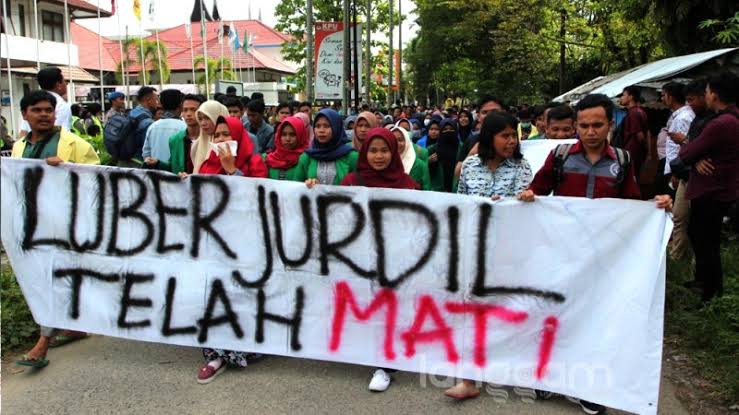 KPU
LUBER JURDIL
TELAH MATI
langgam